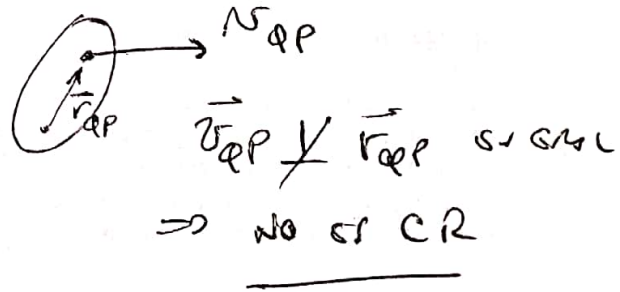 v_QP
\vec{r}_QP
\vec{v}_QP ⊥̸ \vec{r}_QP
⇒ NO es CR